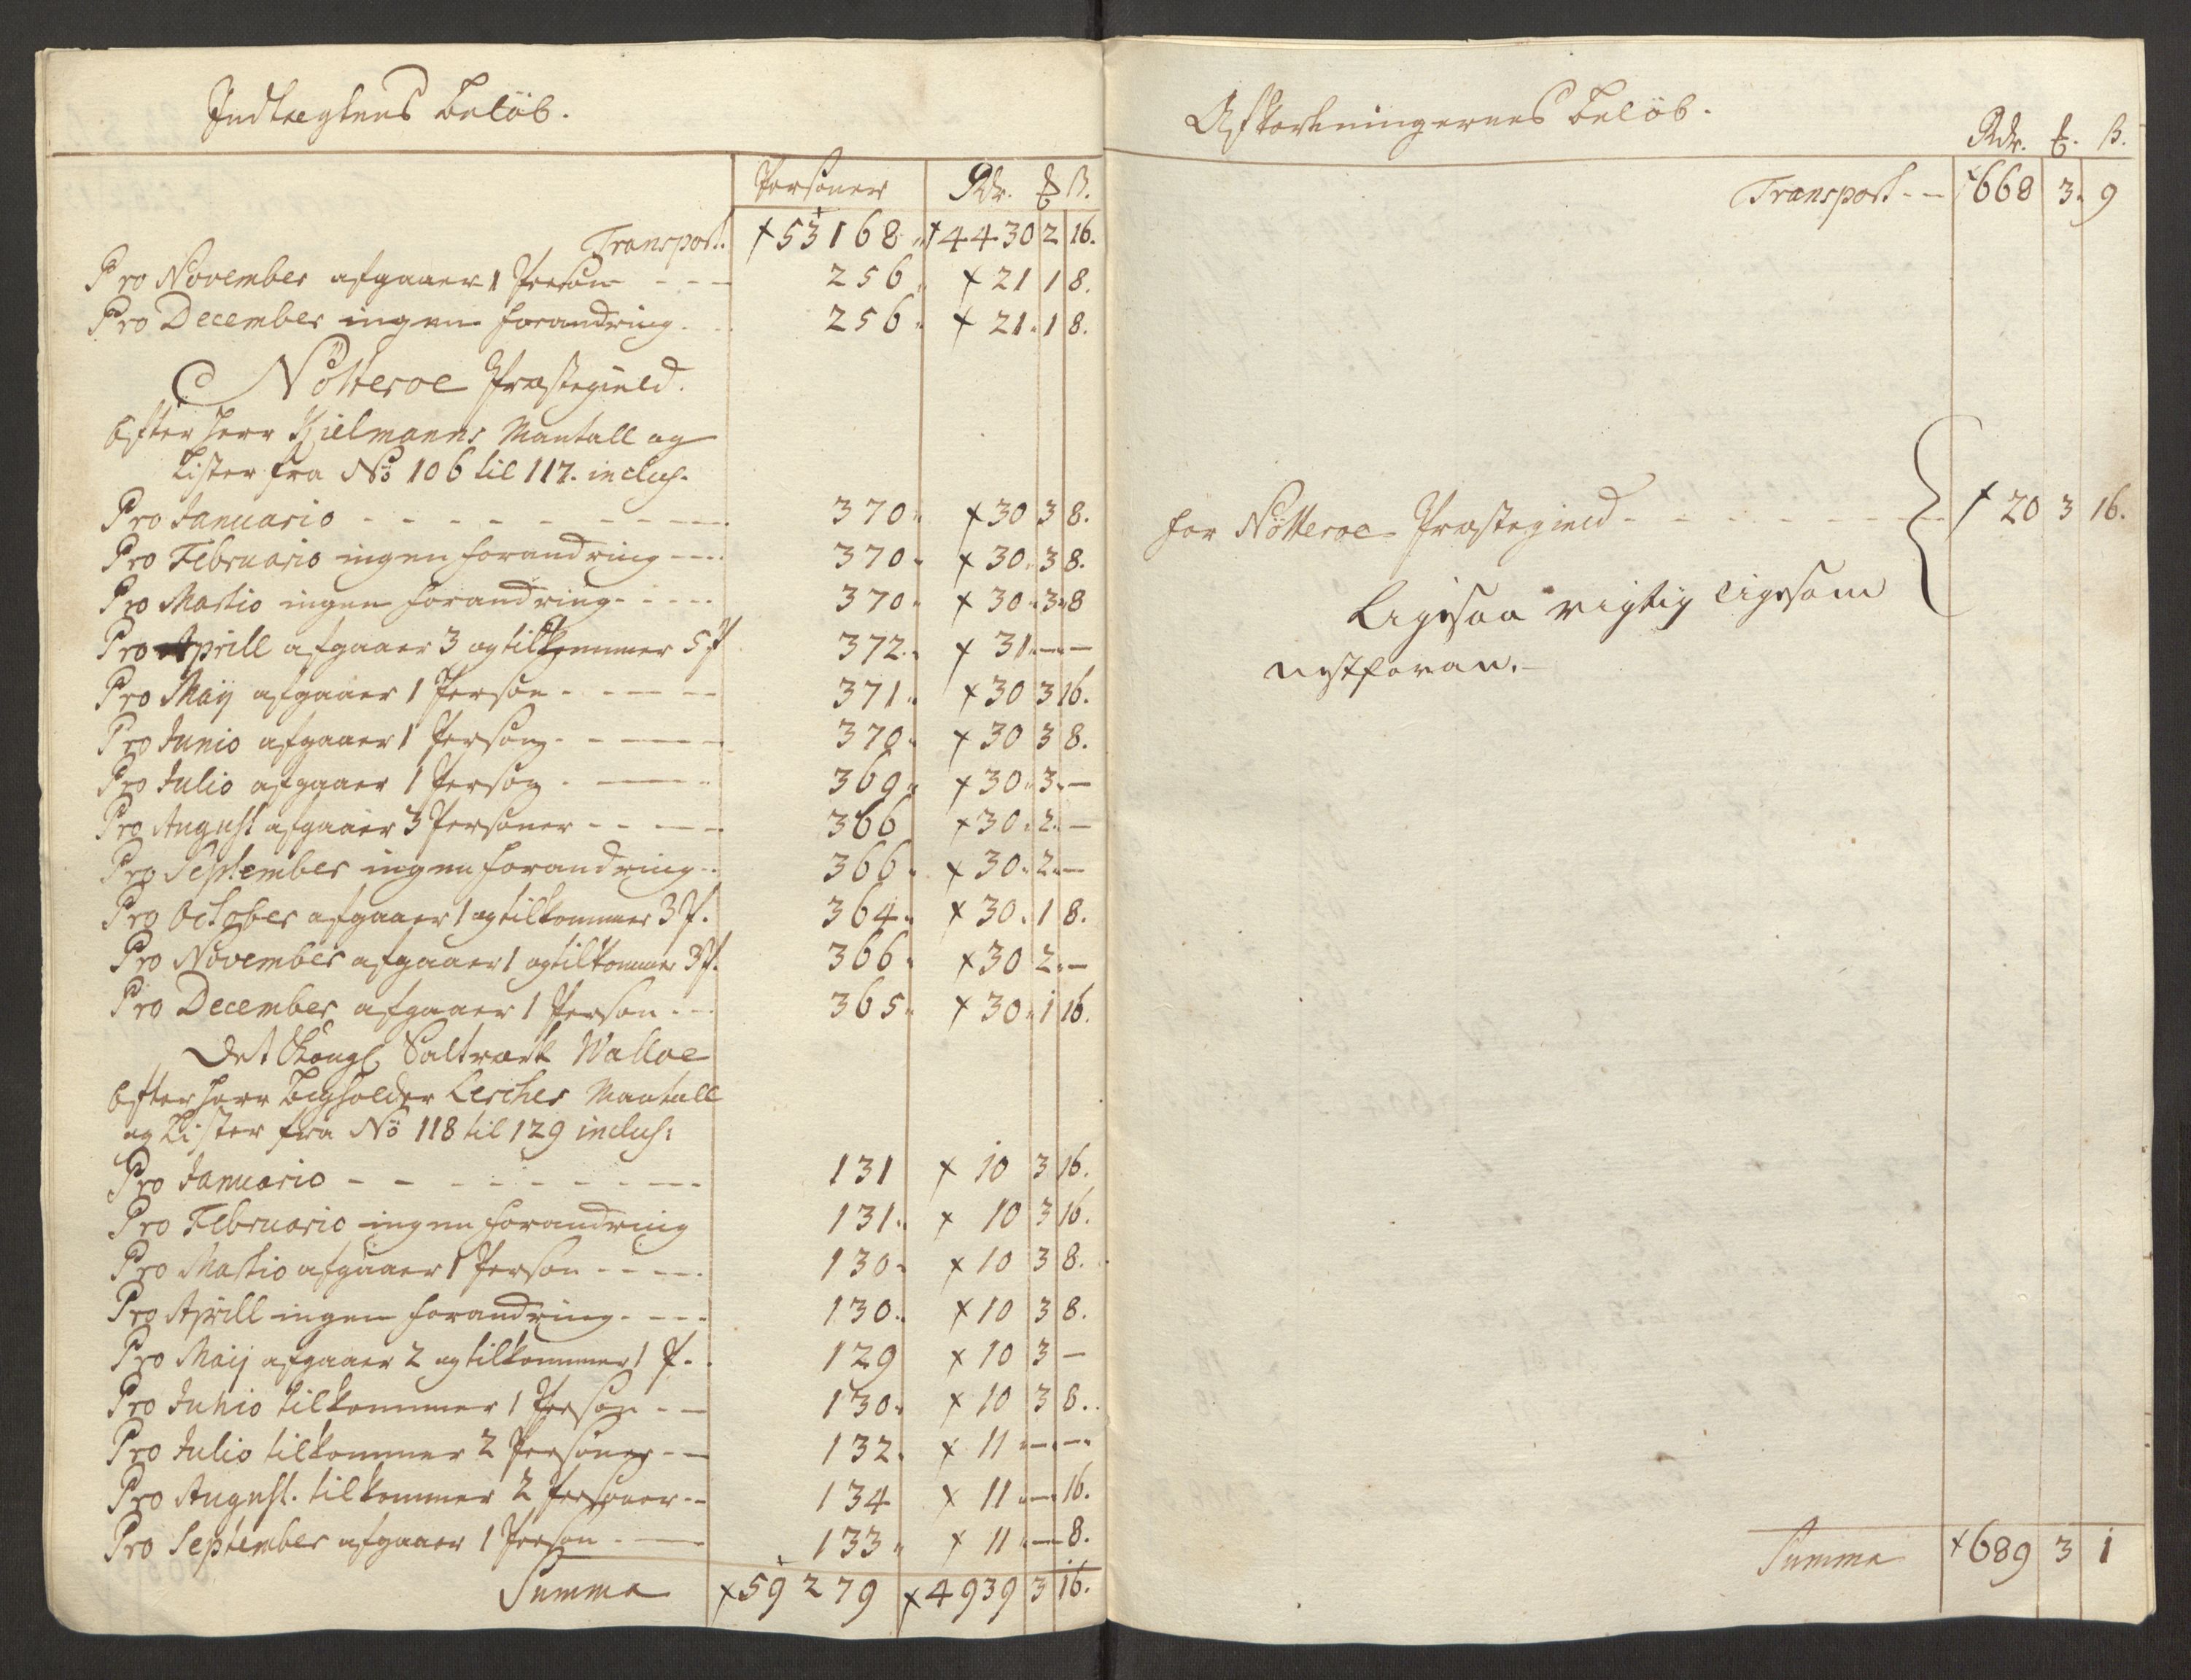 Indtægtens beløb.
Personer Rdr. ß.
Transport. 53168 4430 2 16.
Pro November afgaaer 1 Person - - - 256 21 1 8.
Pro December ingen forandring. 256 21 1 8.
Nötteroe Præstegield.
Efter Herr Kielmanns Mantall og
Lister fra No 106 til 117. inclus.
Pro Januario - - - - - - - - 370 30 3 8.
Pro Februario ingen forandring - - - 370 30 3 8.
Pro Martio ingen forandring - - - - 370 30 3 8
Pro Aprill afgaaer 3 og tilkommer 5 P 372 31 — —
Pro Maij afgaaer 1 Person - - - - 371 30 3 16.
Pro Junio afgaaer 1 Person - - - - 370 30 3 8.
Pro Julio afgaaer 1 Person - - - 369 30 3 —
Pro August afgaaer 3 Personer - - - - 366 30 2 —
Pro September ingen forandring - 366 30 2 —
Pro October afgaaer 1 og tilkommer 3 P. 364 30 1 8.
Pro November afgaaer 1 og tilkommer 3 P. 366 30 2 —
Pro December afgaaer 1 Person - - 365 30 1 16.
Det Kongl Saltværk Walloe
Efter Herr Bogholder Lerches Mantall
og Lister fra No 118 til 129 inclus:
Pro Januario - - - - - - - - 131 10 3 16.
Pro Februario ingen forandring 131 10 3 16.
Pro Martio afgaaer 1 Person - - - - 130 10 3 8.
Pro Aprill ingen forandring - - - 130 10 3 8.
Pro Maij afgaaer 2 og tilkommer 1 P. 129 10 3 —
Pro Junio tilkommer 1 Person - - 130 10 3 8.
Pro Julio tilkommer 2 Personer - - 132 11 — —
Pro August. tilkommer 2 Personer - - 134 11 — 16.
Pro September afgaaer 1 Person - - - 133 11 — 8.
Summa 59279 4939 3 16.
Afkortningernes beløb.
Rdr. ß.
Transport - - 668 3 9
for Nötteroe Præstegield - - - - - - - 20 3 16.
Ligesaa rigtig ligesom
nestforan.
Summa 689 3 1